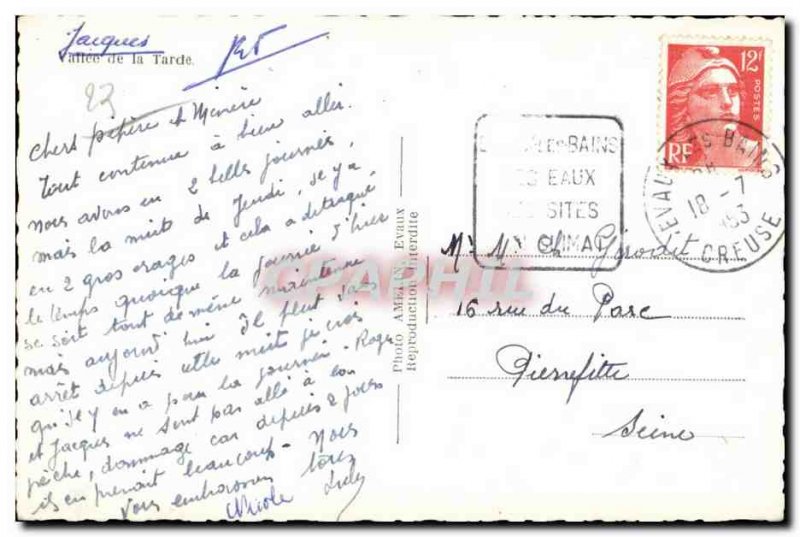 Jacques
Vallée de la Tarde.
23
Chers pépère et Mémère
Tout continue à bien aller.
nous avons eu 2 belles journées,
mais la nuit de jeudi, il y a
eu 2 gros orages et cela a détraqué
le temps quoique la journée d'hier
se soit tout de même maintenue
mais aujourd'hui il pleut sans
arrêt depuis cette nuit je crois
qu'il y en a pour la journée. Roger
et Jacques ne sont pas allé à la
pêche, dommage car depuis 2 jours
ils en prenait beaucoup - Nous
vous embrassons tous
Nicole
Photo AMELIN, Evaux
Reproduction Interdite
12F
POSTES
RF
EVAUX LES BAINS
18 - 7
1953
CREUSE
BAINS
EAUX
SITES
CLIMAT
Mr Me Ch. Girodit
16 rue du Parc
Pierrefitte
Seine
CPAPHIL